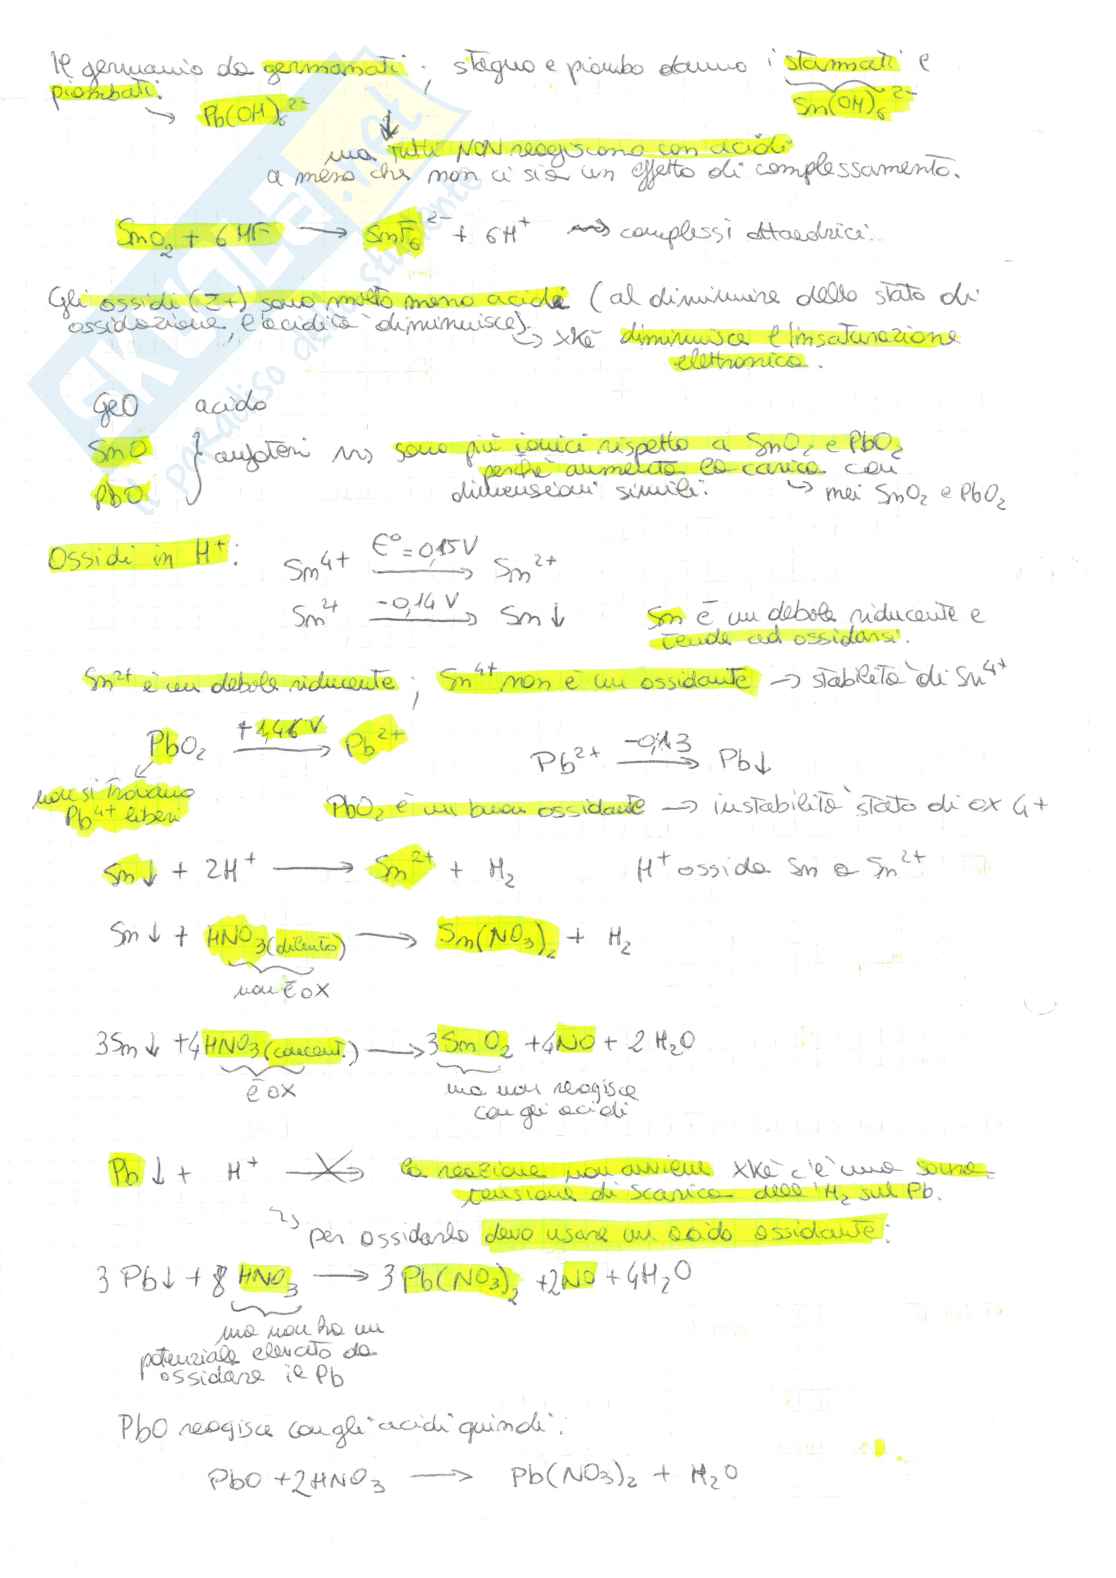 Il germanio da germanati; stagno e piombo danno i stannati e
piombati.
→ Pb(OH)₆²⁻
Sn(OH)₆²⁻
ma tutti NON reagiscono con acidi
a meno che non ci sia un effetto di complessamento.
SnO₂ + 6HF → SnF₆²⁻ + 6H⁺ ⇝ complessi ottaedrici.
Gli ossidi (2+) sono molto meno acidi (al diminuire dello stato di
ossidazione, l'acidità diminuisce).
↳ xkè diminuisce l'insaturazione
elettronica.
GeO acido
SnO
PbO
} anfoteri ⇝ sono più ionici rispetto a SnO₂ e PbO₂
perchè aumenta la carica con
dimensioni simili.
↳ nei SnO₂ e PbO₂
Ossidi in H⁺:
Sn⁴⁺ E°=0,15V → Sn²⁺
Sn²⁺ -0,14 V → Sn↓
Sn è un debole riducente e
tende ad ossidarsi.
Sn²⁺ è un debole riducente; Sn⁴⁺ non è un ossidante → stabilità di Sn⁴⁺
PbO₂ +1,46 V → Pb²⁺
Pb²⁺ -0,13 → Pb↓
non si trovano
Pb⁴⁺ liberi
PbO₂ è un buon ossidante → instabilità stato di ox 4+
Sn↓ + 2H⁺ → Sn²⁺ + H₂
H⁺ ossida Sn a Sn²⁺
Sn↓ + HNO₃ (diluito) → Sn(NO₃)₂ + H₂
non è ox
3Sn↓ + 4HNO₃ (concent.) → 3SnO₂ + 4NO + 2H₂O
è ox
ma non reagisce
con gli acidi
Pb↓ + H⁺ —X→ la reazione non avviene xkè c'è una sovra-
tensione di scarica dell'H₂ sul Pb.
↳ per ossidarlo devo usare un acido ossidante:
3 Pb↓ + 8 HNO₃ → 3 Pb(NO₃)₂ + 2NO + 4H₂O
ma non ha un
potenziale elevato da
ossidare il Pb
PbO reagisce con gli acidi quindi:
PbO + 2HNO₃ → Pb(NO₃)₂ + H₂O
SKUOLA.net
il paradiso dello studente